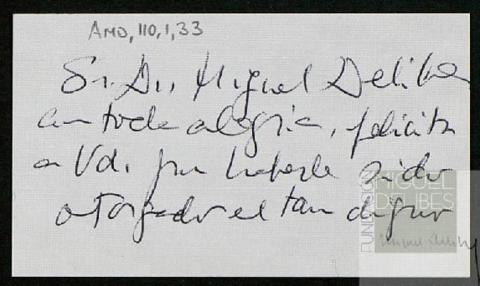 AMD, 110, 1, 33
Sr. D. Miguel Delibes
con toda alegria, felicita
a Vd. por haberle sido
otorgado el tan digno
FUNDACIÓN
MIGUEL
DELIBES